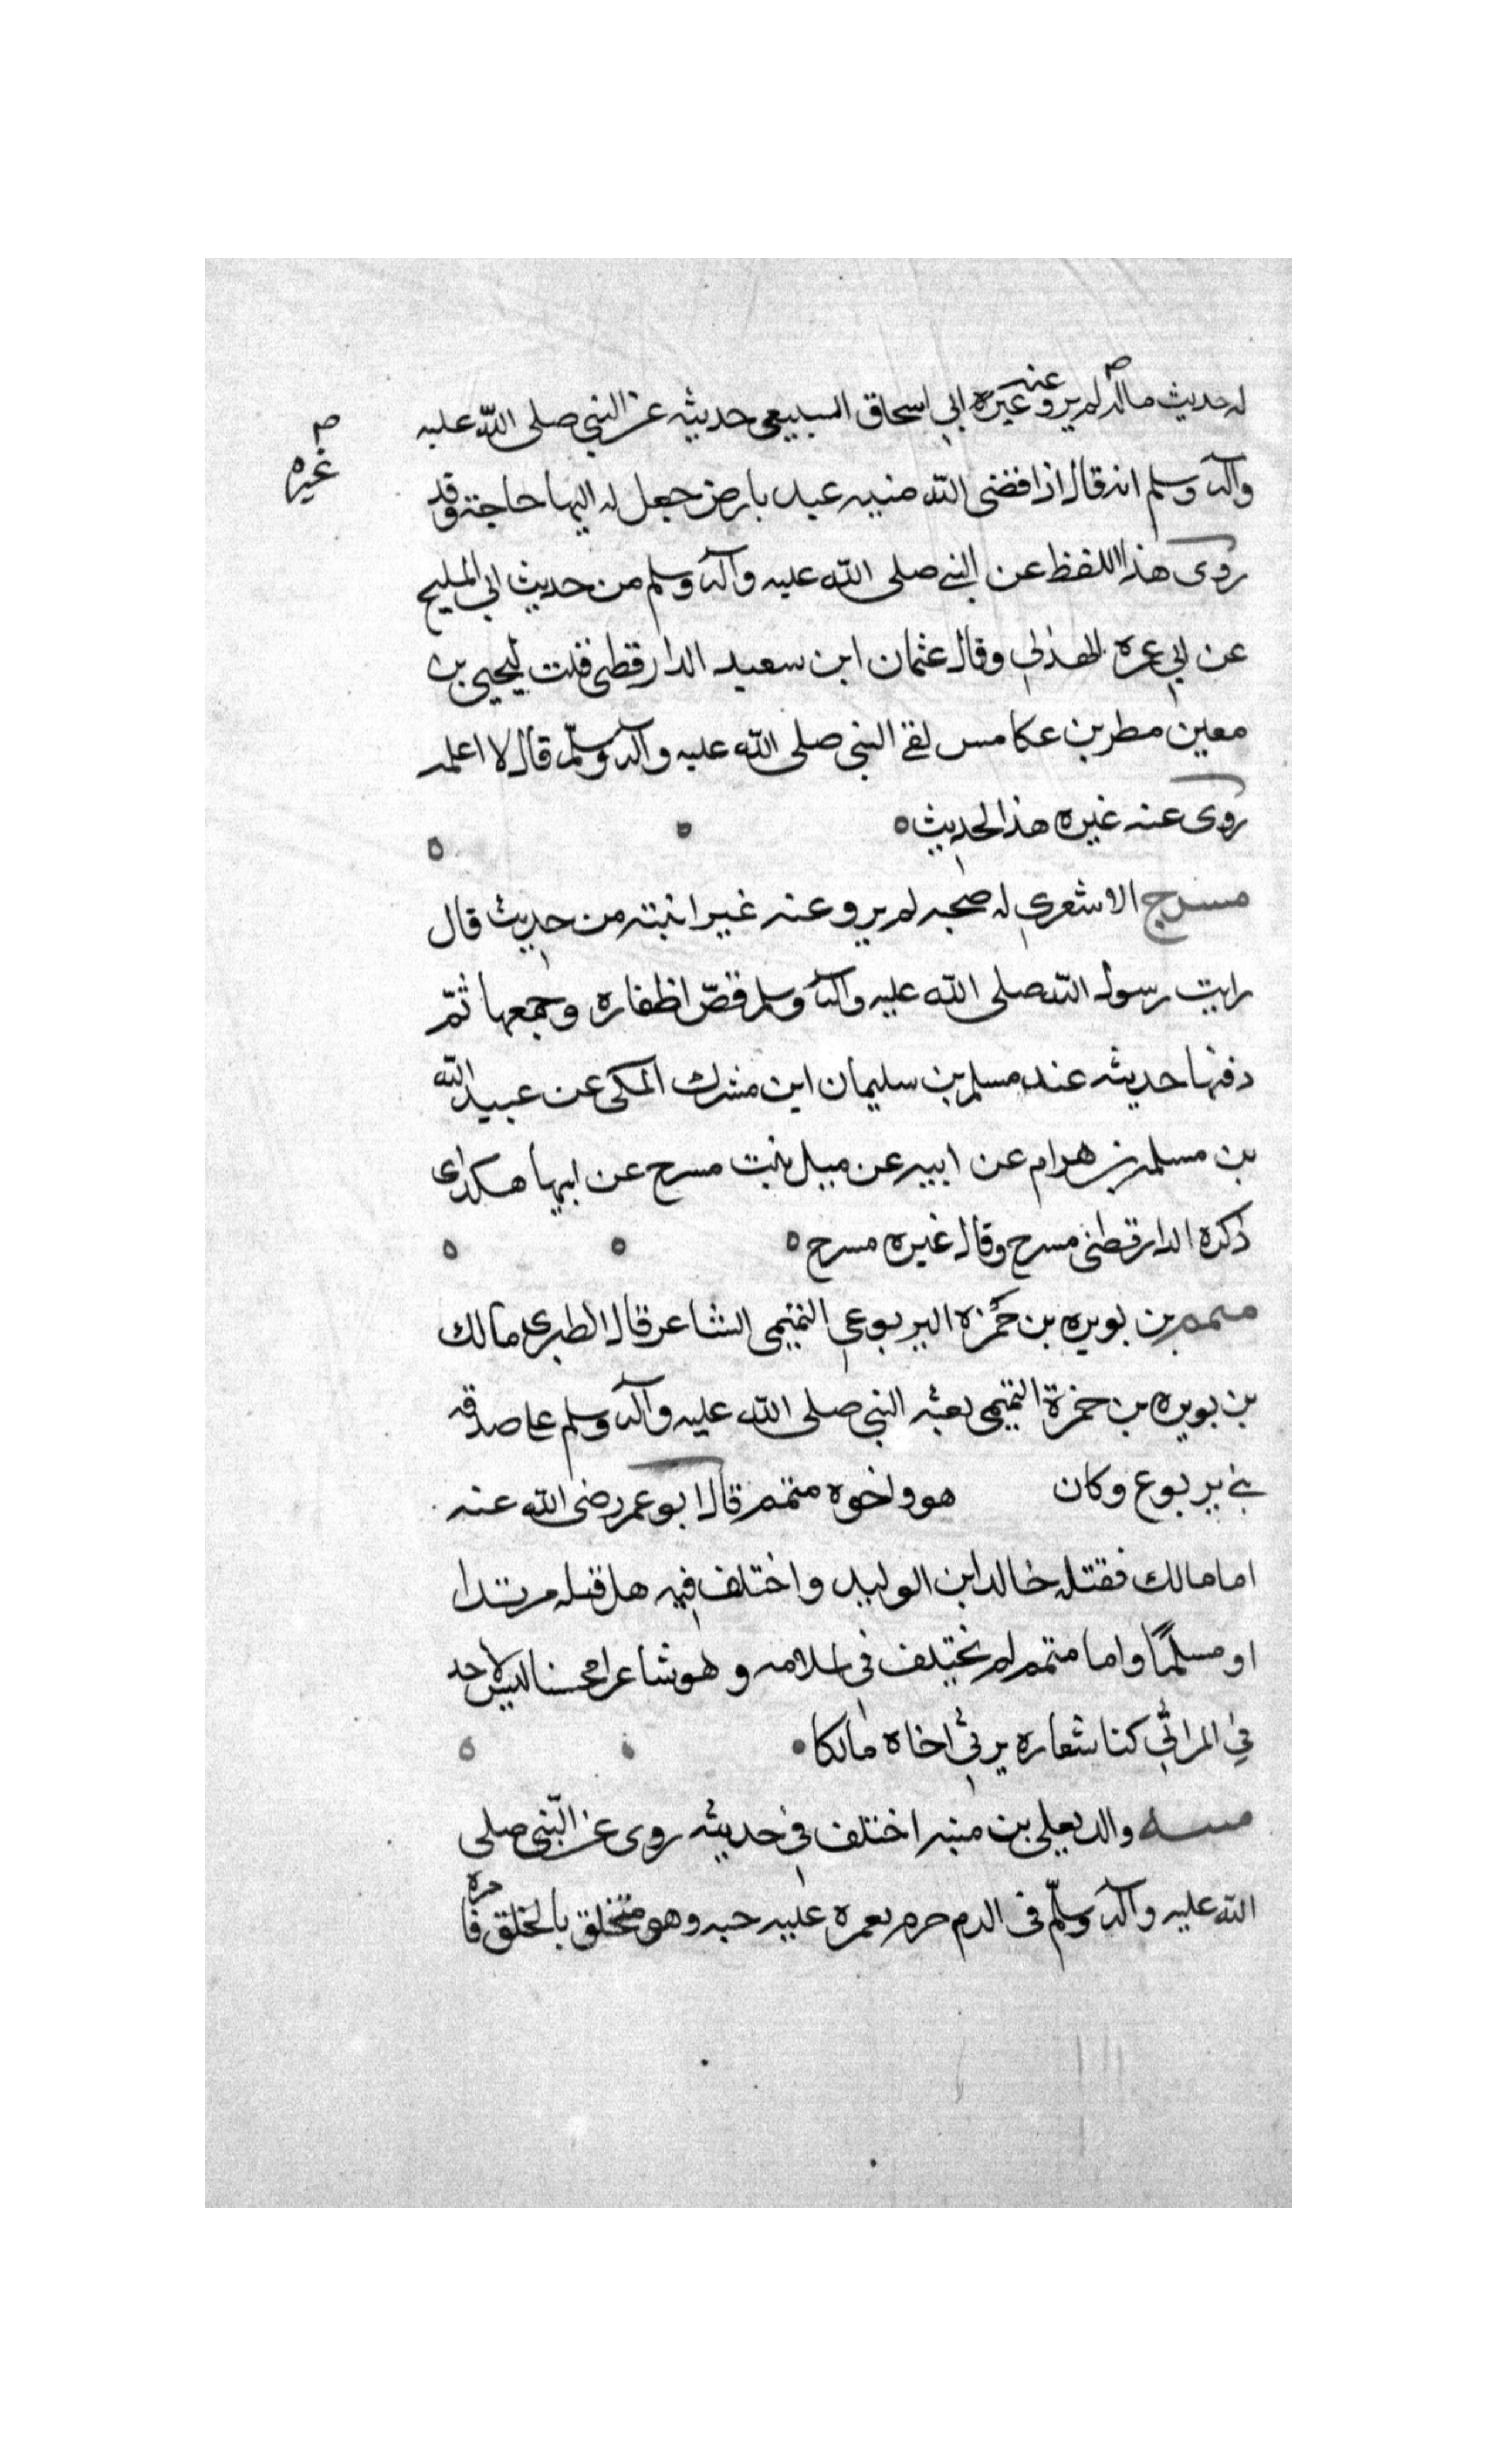 له حديث ماله لم يرو عنه غيره ابي اسحاق السبيعي حديثه عن النبي صلى الله عليه
غيره
واله وسلم انه قال اذا قضى الله منيه عبد بارض جعل له اليها حاجة وقد
روى هذا اللفظ عن النبي صلى الله عليه واله وسلم من حديث ابي المليح
عن ابي عره الهذلي وقال عثمان ابن سعيد الدارقطني قلت ليحيى بن
معين مطر بن عكامس لقي النبي صلى الله عليه واله وسلم قال لا اعلمه
روى عنه غيره هذا الحديث
مسرح الاشعري له صحبه لم يرو عنه غير ابنته من حديث قال
رايت رسول الله صلى الله عليه واله وسلم قصّ اظفاره وجمعها ثمّ
دفنها حديثه عند مسلم بن سليمان ابن مشرك المكي عن عبيد الله
بن مسلمه بن هرام عن ابيه عن ميل بنت مسرح عن ابيها هكذى
ذكره الدارقطني مسرح وقال غيره مسرح
متمم بن نويره بن حمزه اليربوعي التميمي الشاعر قال الطبري مالك
بن نويره بن حمزة التميمي بعثه النبي صلى الله عليه واله وسلم على صدقه
بني يربوع وكان هو واخوه متمم قال ابو عمر رضى الله عنه
اما مالك فقتله خالد ابن الوليد واختلف فيه هل قتله مرتدا
او مسلمًا واما متمم لم يختلف في اسلامه وهو شاعرا محسنا ليس لاحد
في المراثي كنا شعاره يرثي اخاه مالكا
منبه والد يعلى بن منبه اختلف في حديثه روى عن النّبي صلى
الله عليه واله وسلّم في الدم حرم بعمره عليه جبه وهو متخلق بالخلق فا مره